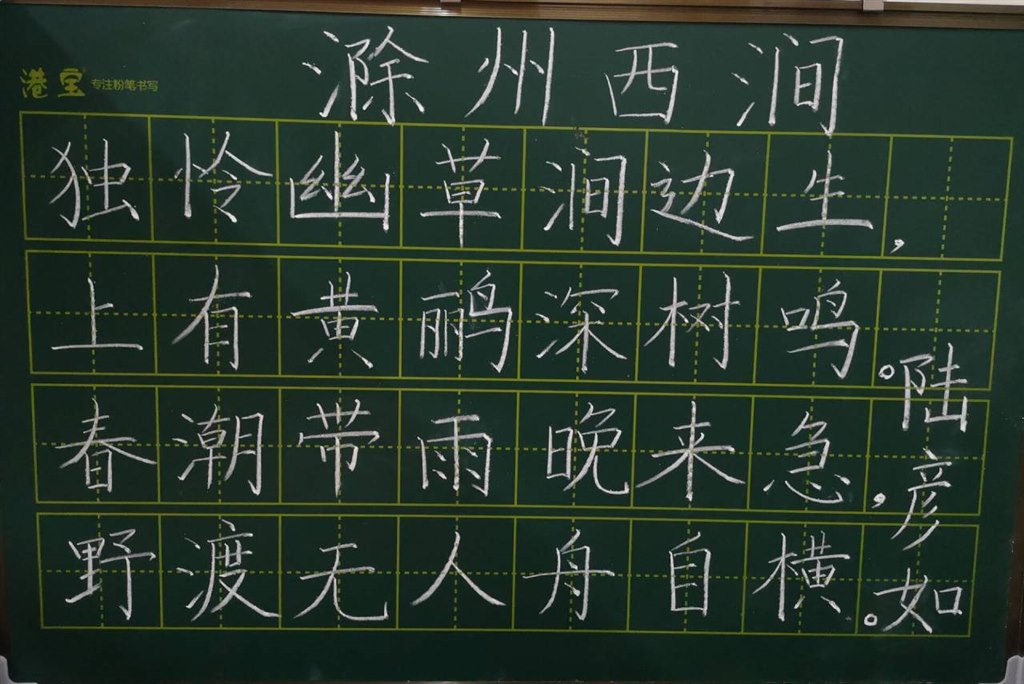 滁州西涧
港宝 专注粉笔书写
独怜幽草涧边生，
上有黄鹂深树鸣。
春潮带雨晚来急，
野渡无人舟自横。
陆彦如